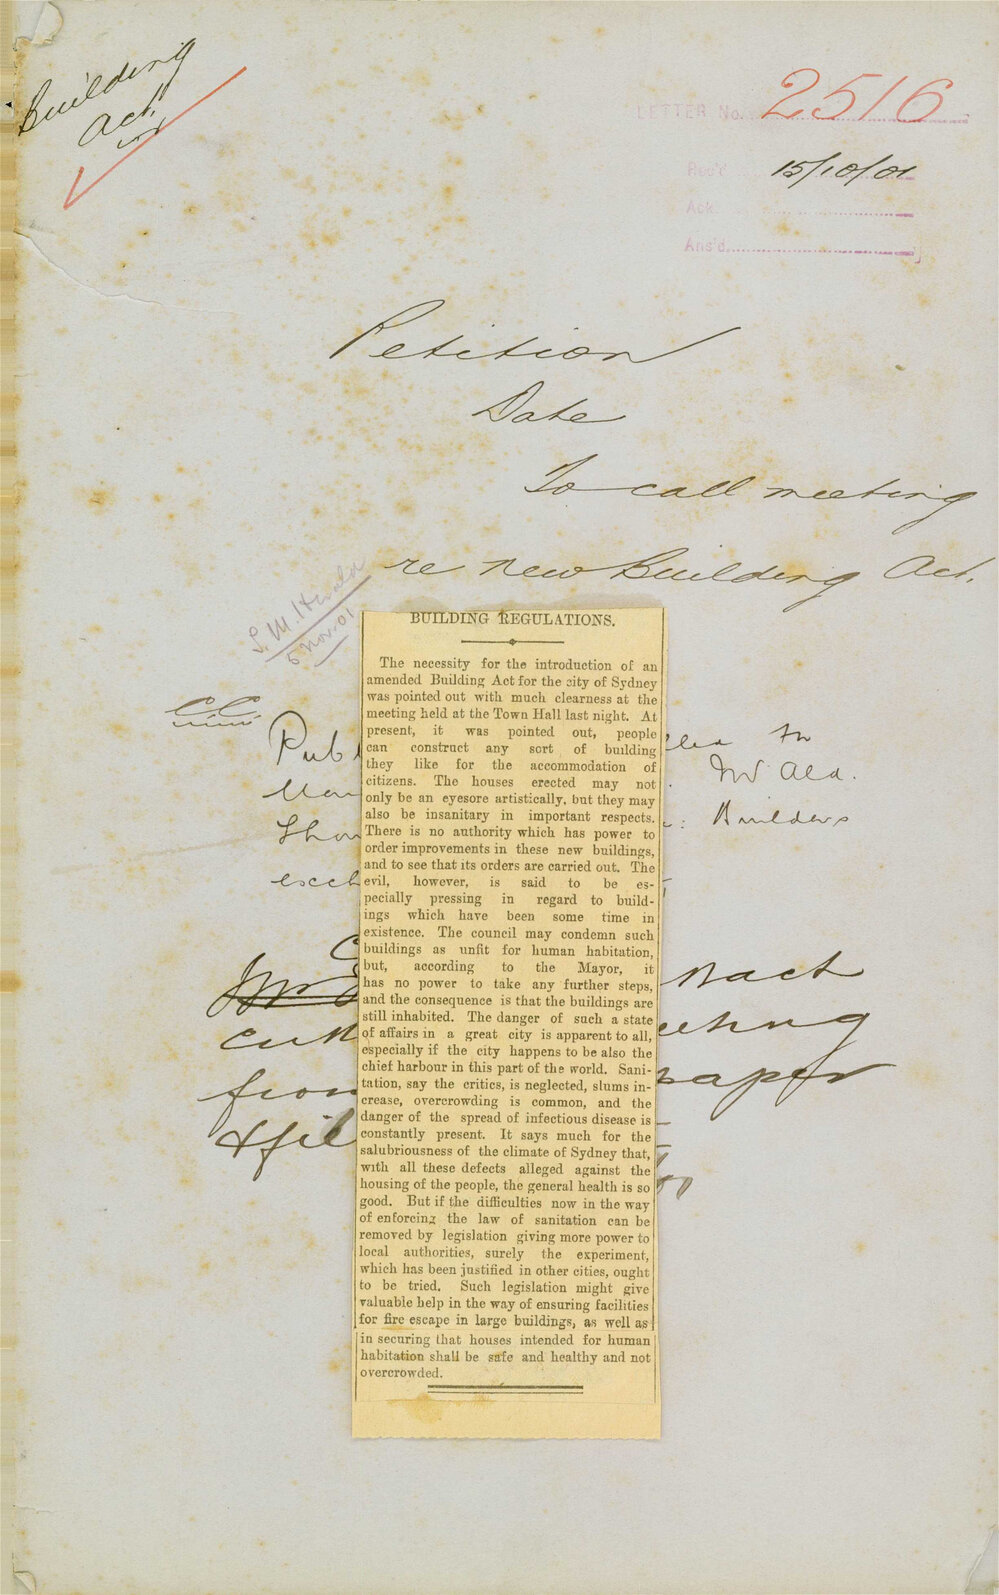 Building
Act.
LETTER No. 2516
Rec'd 15/10/01
Ack.
Ans'd.
Petition
Date
To call meeting
re new Building Act.
S. M. Herald
5 Nov. 01
BUILDING REGULATIONS.
The necessity for the introduction of an
amended Building Act for the city of Sydney
was pointed out with much clearness at the
meeting held at the Town Hall last night. At
present, it was pointed out, people
can construct any sort of building
they like for the accommodation of
citizens. The houses erected may not
only be an eyesore artistically, but they may
also be insanitary in important respects.
There is no authority which has power to
order improvements in these new buildings,
and to see that its orders are carried out. The
evil, however, is said to be es-
pecially pressing in regard to build-
ings which have been some time in
existence. The council may condemn such
buildings as unfit for human habitation,
but, according to the Mayor, it
has no power to take any further steps,
and the consequence is that the buildings are
still inhabited. The danger of such a state
of affairs in a great city is apparent to all,
especially if the city happens to be also the
chief harbour in this part of the world. Sani-
tation, say the critics, is neglected, slums in-
crease, overcrowding is common, and the
danger of the spread of infectious disease is
constantly present. It says much for the
salubriousness of the climate of Sydney that,
with all these defects alleged against the
housing of the people, the general health is so
good. But if the difficulties now in the way
of enforcing the law of sanitation can be
removed by legislation giving more power to
local authorities, surely the experiment,
which has been justified in other cities, ought
to be tried. Such legislation might give
valuable help in the way of ensuring facilities
for fire escape in large buildings, as well as
in securing that houses intended for human
habitation shall be safe and healthy and not
overcrowded.
CC
Publ
Ald.
Builders
from paper